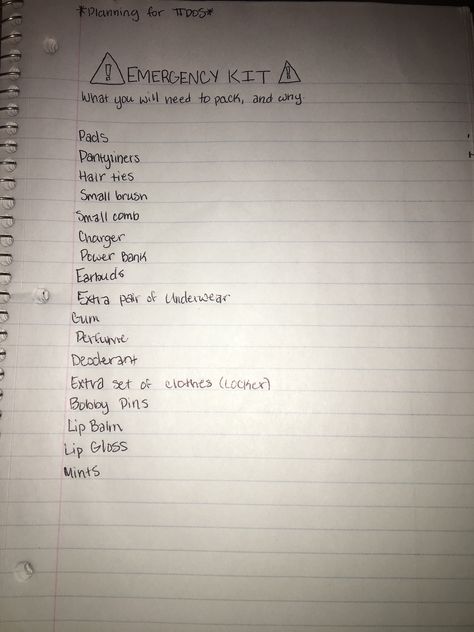 *Planning for TTDOS*
EMERGENCY KIT
What you will need to pack, and why
Pads
Pantyliners
Hair ties
Small brush
Small comb
Charger
Power Bank
Earbuds
Extra pair of Underwear
Gum
Perfume
Deoderant
Extra set of clothes (Locker)
Bobby Pins
Lip Balm
Lip Gloss
Mints